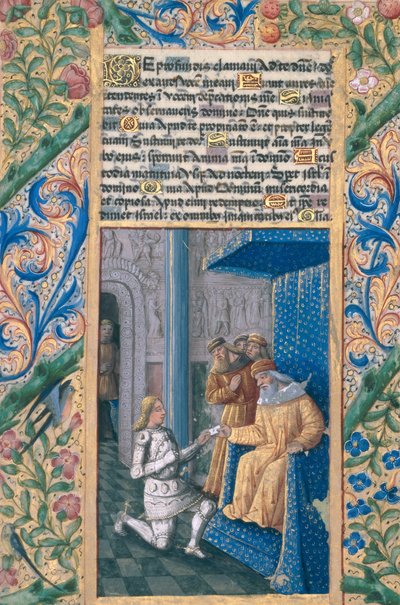 DE profundis clamavi Ad te dñe: do
exaudi vocem meam Fiant aures tue
intendentes: in vocem deprecationis mee Si iniqui
tates observaveris domine: Domine quis sustine
bit Quia Apud te propiciatio est et propter legem
tuam Sustinui te dñe Sustinuit aīa mea in
verbo eius: speravit Anima mea in domino A
stodia matutina usque Ad noctem: Speret isrl
domino Quia Apud dominum misericordia
et copiosa Apud eum redemptio Et ipse
imet israel: ex omnibus iniquitatibus